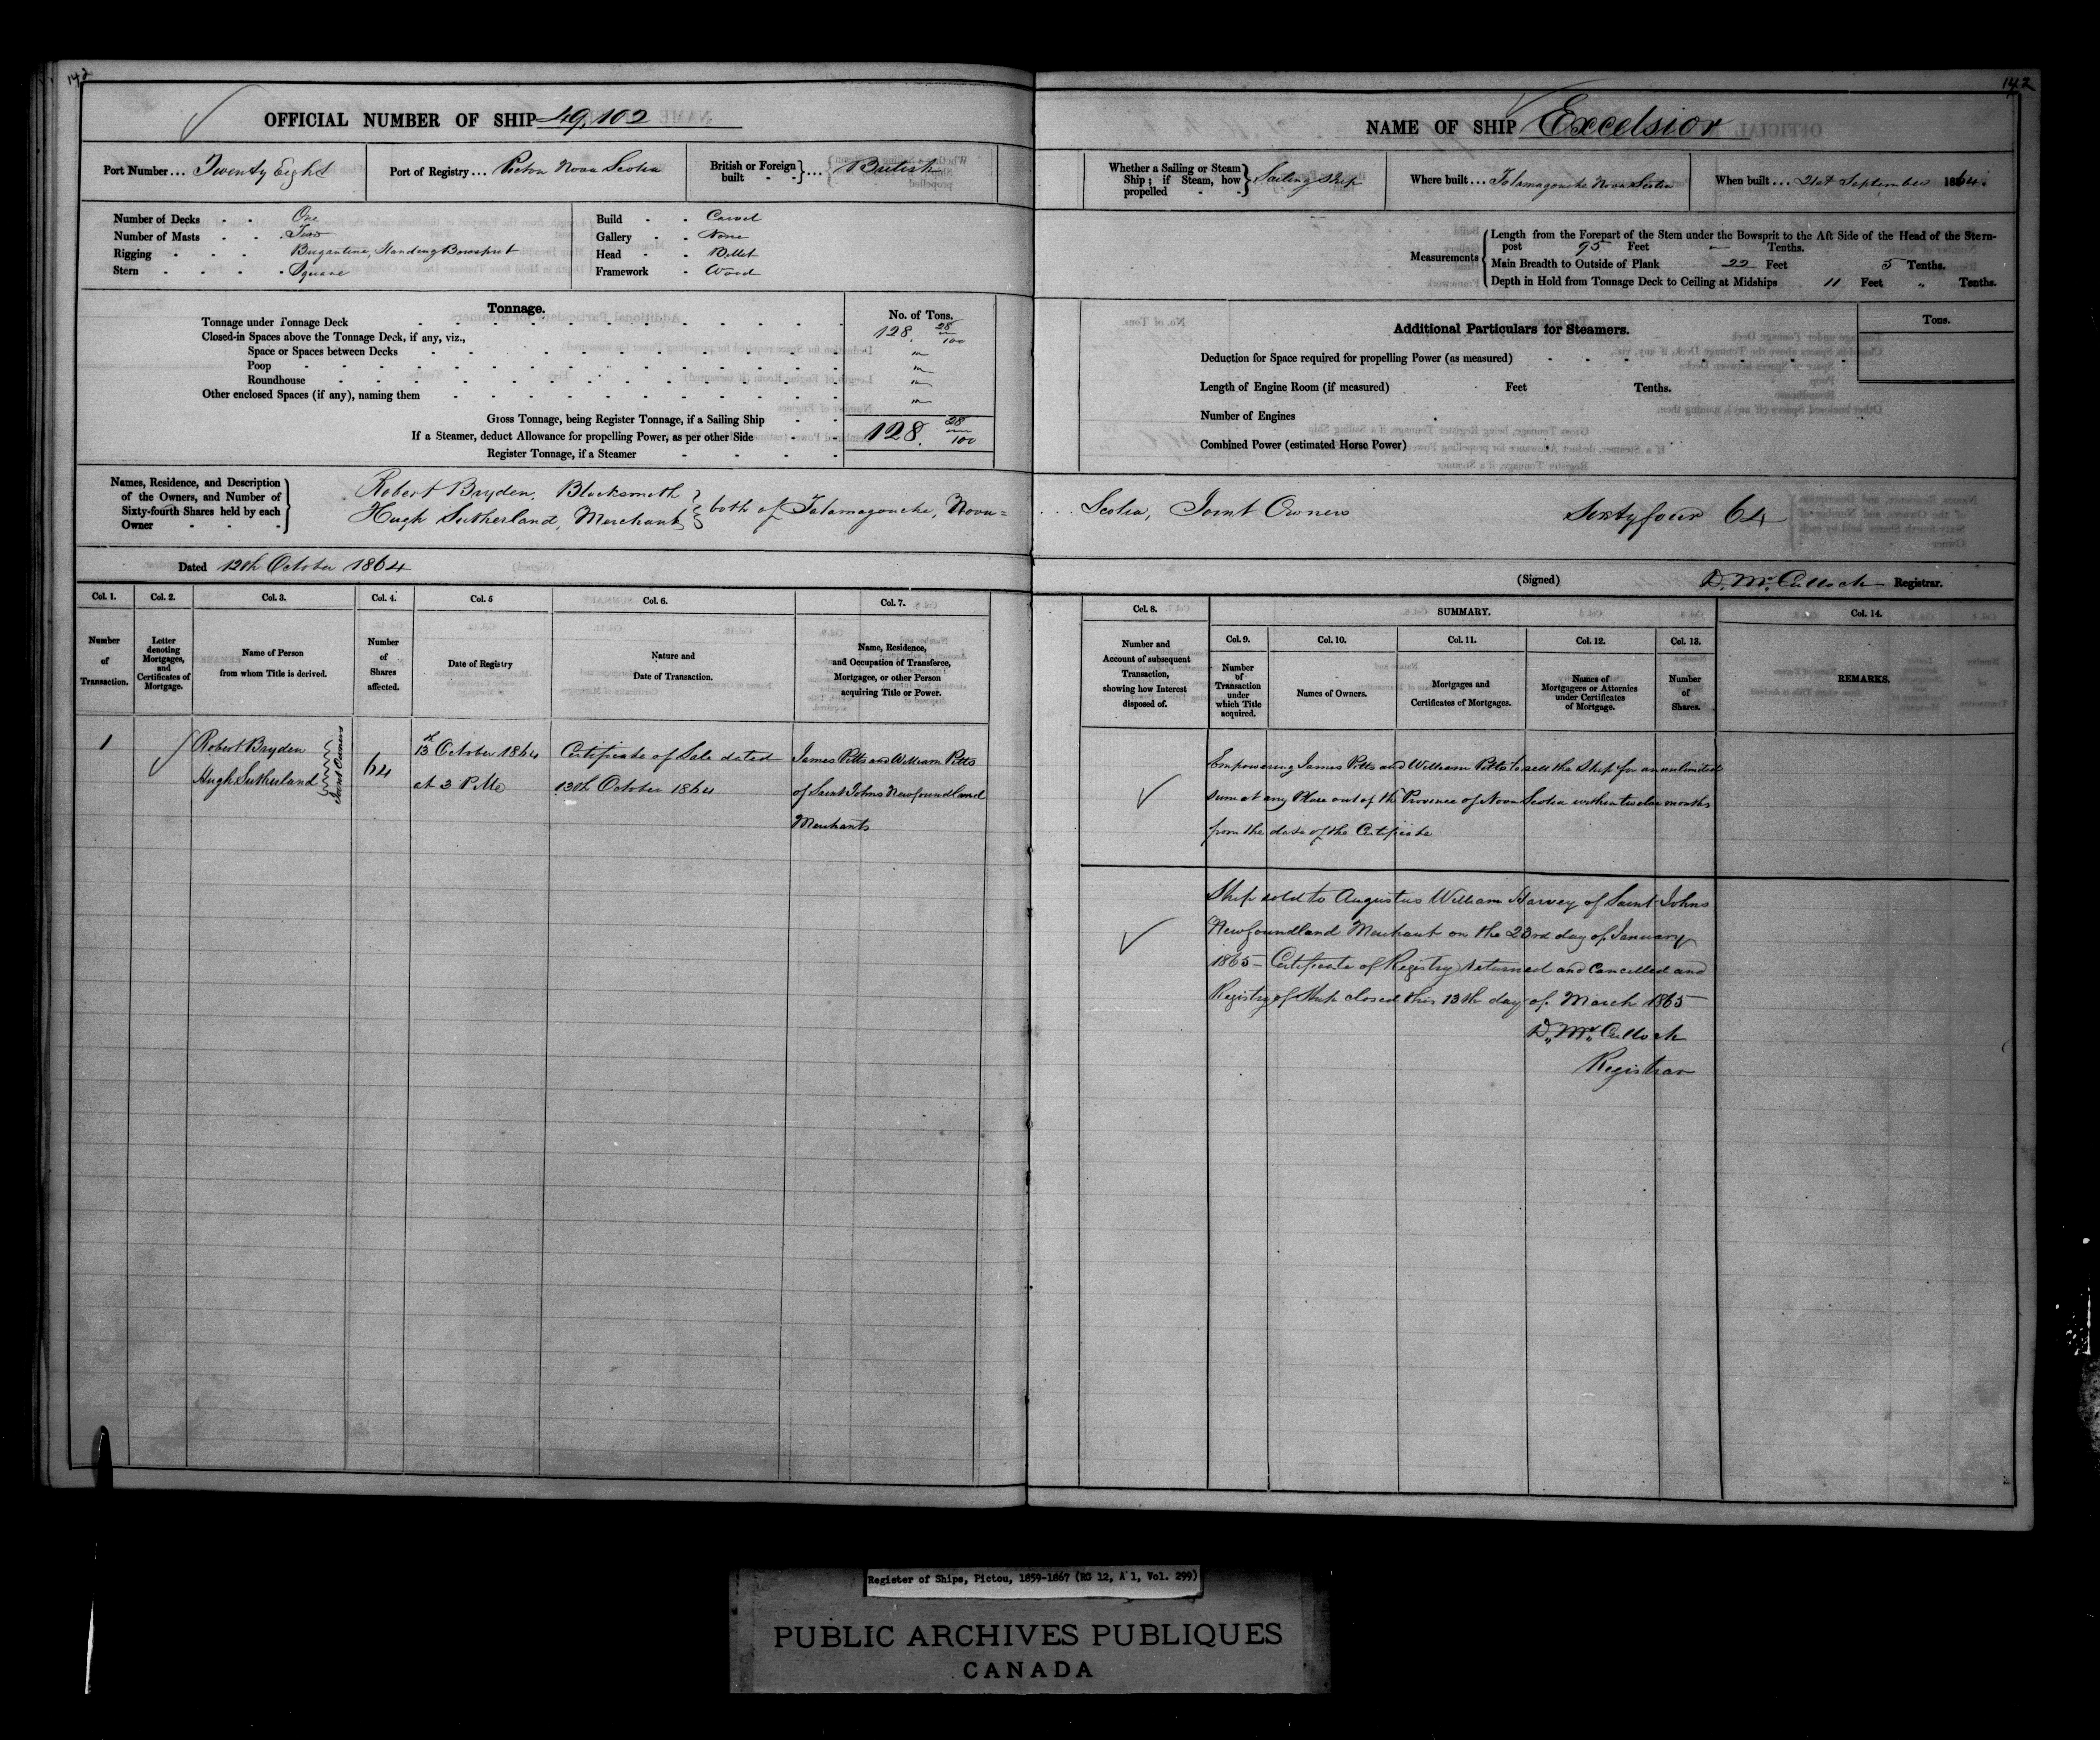 142
OFFICIAL NUMBER OF SHIP 49,102
Port Number ... Twenty Eight
Port of Registry ... Pictou Nova Scotia
British or Foreign built - - } ... British
Number of Decks - - One
Number of Masts - - Two
Rigging - - - Brigantine, Standing Bowsprit
Stern - - - - Square
Build - - Carvel
Gallery - - None
Head - - Billet
Framework - Wood
Tonnage.
No. of Tons.
Tonnage under Tonnage Deck 128. 28/100
Closed-in Spaces above the Tonnage Deck, if any, viz.,
Space or Spaces between Decks
Poop
Roundhouse
Other enclosed Spaces (if any), naming them
Gross Tonnage, being Register Tonnage, if a Sailing Ship
If a Steamer, deduct Allowance for propelling Power, as per other Side 128. 28/100
Register Tonnage, if a Steamer
Names, Residence, and Description of the Owners, and Number of Sixty-fourth Shares held by each Owner
Robert Bryden, Blacksmith
Hugh Sutherland, Merchant } both of Tatamagouche, Nova=
Dated 12th October 1864
Col. 1. Col. 2. Col. 3. Col. 4. Col. 5 Col. 6. Col. 7.
Number of Transaction.
Letter denoting Mortgages, and Certificates of Mortgage.
Name of Person from whom Title is derived.
Number of Shares affected.
Date of Registry
Nature and Date of Transaction.
Name, Residence, and Occupation of Transferee, Mortgagee, or other Person acquiring Title or Power.
1
Robert Bryden
Hugh Sutherland
Joint Owners
64
13th October 1864
at 3 P.M.
Certificate of Sale dated
13th October 1864
James Pitts and William Pitts
of Saint Johns Newfoundland
Merchants
142
NAME OF SHIP Excelsior
Whether a Sailing or Steam Ship; if Steam, how propelled - - } Sailing Ship
Where built ... Tatamagouche Nova Scotia
When built ... 21st September 1864.
Measurements
Length from the Forepart of the Stem under the Bowsprit to the Aft Side of the Head of the Stern-
post 95 Feet — Tenths.
Main Breadth to Outside of Plank 22 Feet 5 Tenths.
Depth in Hold from Tonnage Deck to Ceiling at Midships 11 Feet " Tenths.
Additional Particulars for Steamers.
Tons.
Deduction for Space required for propelling Power (as measured)
Length of Engine Room (if measured) Feet Tenths.
Number of Engines
Combined Power (estimated Horse Power)
... Scotia, Joint Owners Sixty four 64
(Signed) D. McCulloch Registrar.
Col. 8.
Number and Account of subsequent Transaction, showing how Interest disposed of.
SUMMARY.
Col. 9. Col. 10. Col. 11. Col. 12. Col. 13. Col. 14.
Number of Transaction under which Title acquired.
Names of Owners.
Mortgages and Certificates of Mortgages.
Names of Mortgagees or Attornies under Certificates of Mortgage.
Number of Shares.
REMARKS.
Empowering James Pitts and William Pitts to sell the Ship for an unlimited
sum at any Place out of the Province of Nova Scotia within twelve months
from the date of the Certificate
Ship sold to Augustus William Harvey of Saint Johns
Newfoundland Merchant on the 23rd day of January
1865 — Certificate of Registry returned and cancelled and
Registry of Ship closed this 13th day of March 1865
D. McCulloch
Registrar
Register of Ships, Pictou, 1859-1867 (RG 12, A 1, Vol. 299)
PUBLIC ARCHIVES PUBLIQUES
CANADA